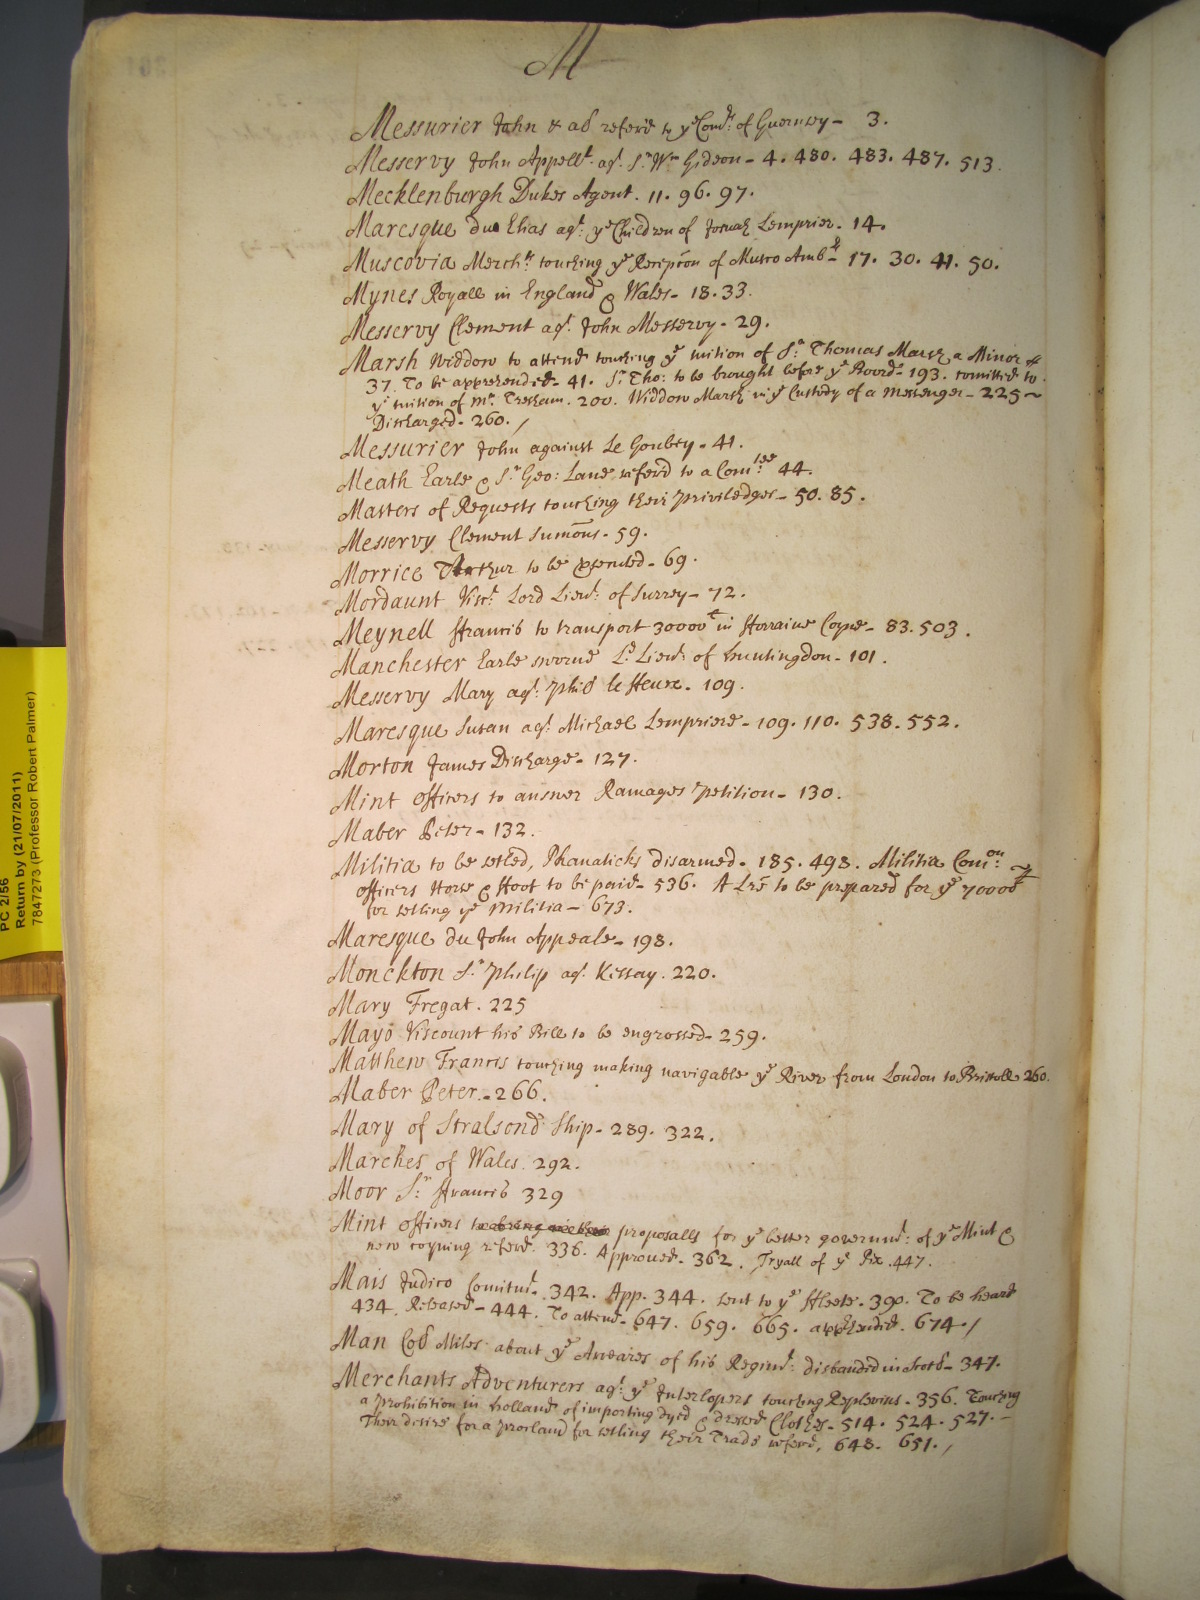 M
Messurier John & al referd to ye Comrs of Guernsey - 3.
Messervy John Appellt agt Sr Wm Gideon - 4. 480. 483. 487. 513.
Mecklenburgh Dukes Agent. 11. 96. 97.
Maresque du Elias agt: ye Children of Josuah Lemprier. 14.
Muscovia Mercht touching ye Reception of Musco Ambr - 17. 30. 41. 50.
Mynes Royall in England & Wales - 18. 33.
Messervy Clement agt. John Messervy - 29.
Marsh Widdow to attend touching ye tuition of Sr Thomas Marsh a Minor &
37. To be apprehended - 41. Sr Tho: to be brought before ye Board - 193. comitted to
ye tuition of Mr. Tresham. 200. Widdow Marsh in ye Custody of a Messenger - 225 ~
Discharged - 260. /
Messurier John against Le Goubey - 41.
Meath Earle & Sr Geo: Lane referd to a Comtee 44.
Masters of Requests touching their Priviledges - 50. 85.
Messervy Clement Sumons - 59.
Morrice Arthur to be - 69.
Mordaunt Visct Lord Lieut: of Surrey - 72.
Meynell ffrancis to transport 30000 £ in fforraine Coyne - 83. 503.
Manchester Earle sworne Ld Lieut of Huntingdon - 101.
Messervy Mary agt: Phil le ffeure. 109.
Maresque Susan agt Michael Lempriere - 109. 110. 538. 552.
Morton James Discharge - 127.
Mint officers to answer Ramages Petition - 130.
Maber Peter - 132.
Militia to be setled, Phanaticks disarmed - 185. 498. Militia Comon:
officers Horse & ffoot to be paid - 536. A Lre to be prepared for ye 70000£
for setling ye Militia - 673.
Maresque du John Appeale - 198.
Monckton Sr Philip agt. Kessay. 220.
Mary Fregat. 225
Mayo Viscount his Bill to be engrossed - 259.
Matthew Francis touching making navigable ye River from London to Bristoll 260.
Maber Peter. - 266.
Mary of Stralsond Ship - 289. 322.
Marches of Wales. 292.
Moor Sr: ffrancis 329
Mint officers to bring in their proposalls for ye better governmt: of ye Mint &
new coyning referd. 336. Approved. 362. Tryall of ye Pix. 447.
Mais Judico Comitmt. 342. App. 344. sent to ye ffleete. 390. To be heard
434. Released - 444. To attend - 647. 659. 665. apprehended. 674. /
Man Coll Miles about ye Arreares of his Regimt: disbanded in Scotd - 347.
Merchants Adventurers agt: ye Interlopers touching Replevins - 356. Touching
a Prohibition in Holland of importing dyed & dressed Clothes - 514. 524. 527. -
Their desire for a Procland for setling their Trade referd. 648. 651. /
PC 2/56
Return by (21/07/2011)
7847273 (Professor Robert Palmer)